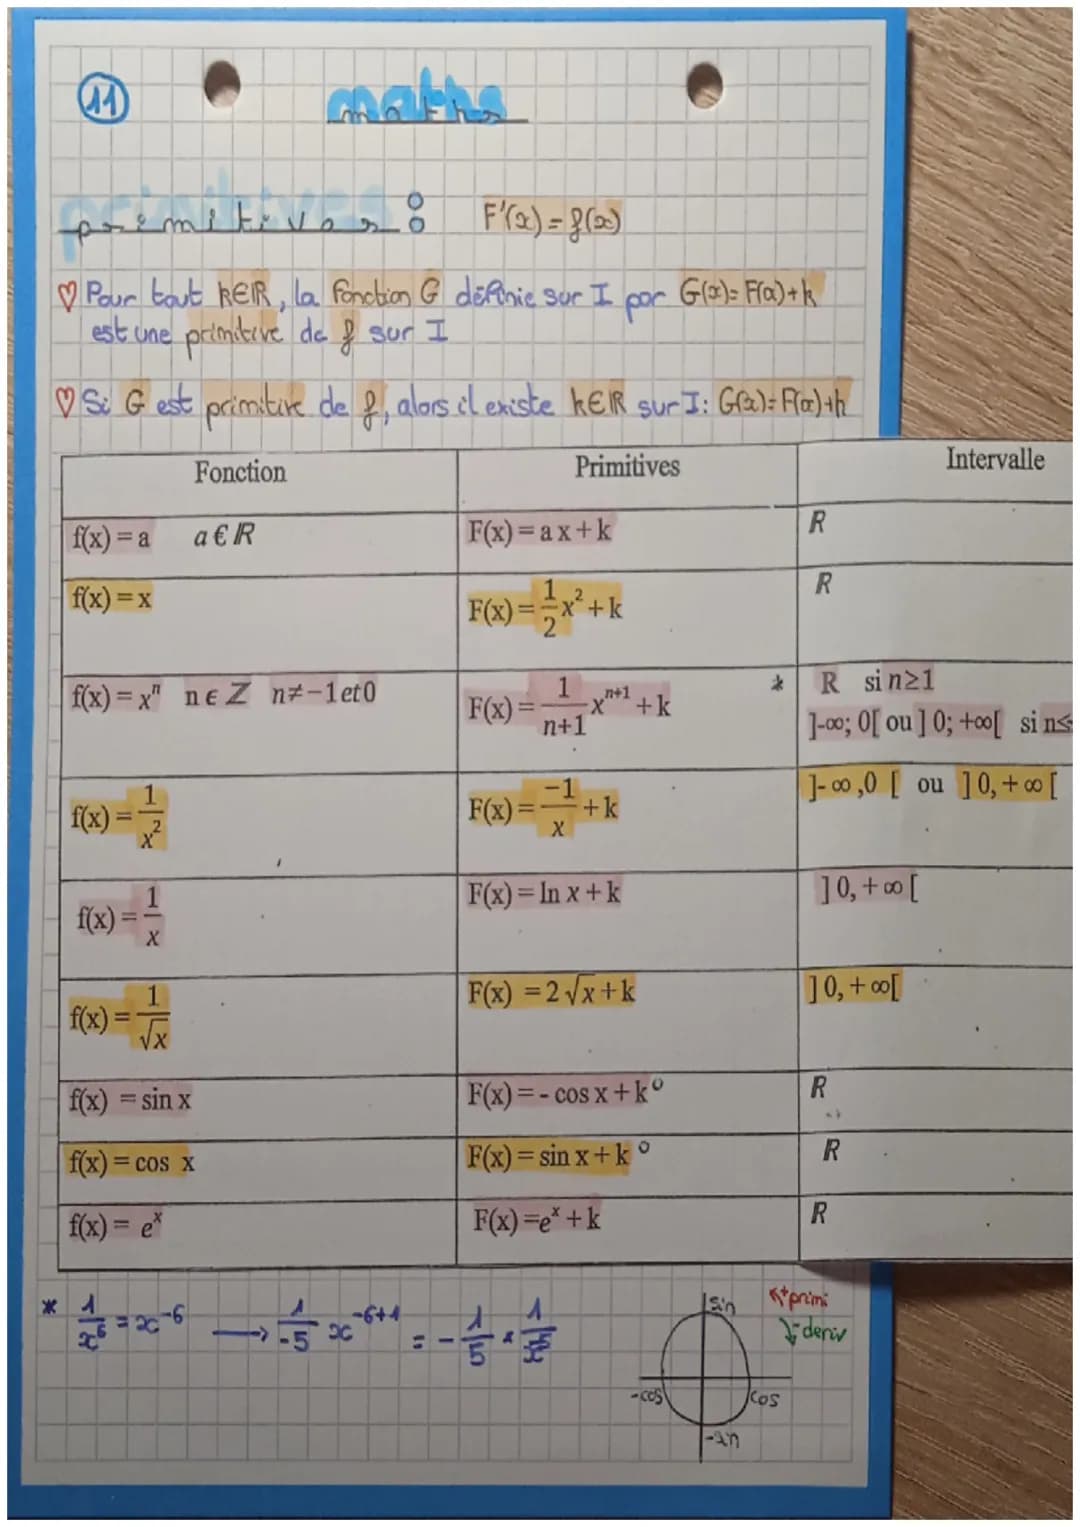 11
maths
primitives :
F'(x) = f(x)
♡ Pour tout k∈ℝ, la fonction G définie sur I par G(x) = F(x) + k
est une primitive de f sur I
♡ Si G est primitive de f, alors il existe k∈ℝ sur I : G(x) = F(x) + k
Fonction Primitives Intervalle
f(x) = a a € R F(x) = a x + k R
f(x) = x F(x) = 1/2 x² + k R
f(x) = xⁿ n ϵ Z n≠−1 et 0 F(x) = 1/(n+1) xⁿ⁺¹ + k * R si n≥1
]-∞; 0[ ou ] 0; +∞[ si n≤
f(x) = 1/x² F(x) = −1/x + k ]- ∞ ,0 [ ou ] 0, + ∞ [
f(x) = 1/x F(x) = ln x + k ] 0, + ∞ [
f(x) = 1/√x F(x) = 2 √x + k ] 0, + ∞[
f(x) = sin x F(x) = - cos x + k ° R
f(x) = cos x F(x) = sin x + k ° R
f(x) = eˣ F(x) = eˣ + k R
* 1/x⁶ = x⁻⁶ → 1/-5 x⁻⁶⁺¹ = - 1/5 × 1/x⁵
sin
-cos cos
-sin
↖+ primi
↓- deriv